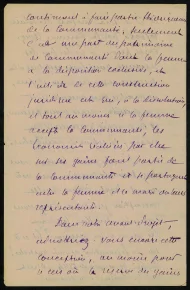 continuent à faire partie
de la Communauté, seulement
c'est une part du patrimoine
de Communauté dont la femme
a la disposition exclusive, et
l'utilité de cette construction
juridique est que, à la dissolution
et tout au moins si la femme
accepte la Communauté, les
économies réalisées par elle
sur ses gains font partie de
la Communauté et se partagent
entre la femme et le mari ou leurs
représentants.
Dans notre avant-projet,
vous encore cette
conception, au moins pour
le cas où la réserve des gains